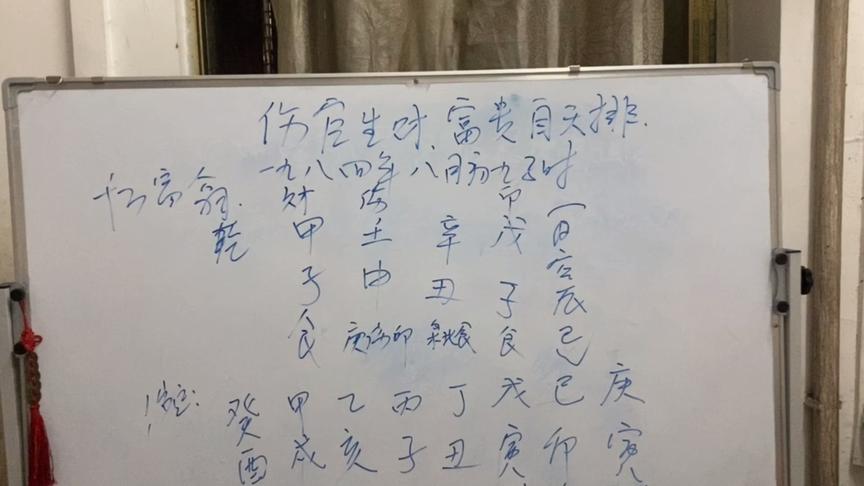 伤官生财富贵自天排.
一九八四年八月初九子时
亿富翁. 财 伤 印
乾 甲 壬 辛 戊 (日空辰巳)
子 申 丑 子
食 庚伤印 枭比食 食
癸 甲 乙 丙 丁 戊 己 庚
酉 戌 亥 子 丑 寅 卯 寅